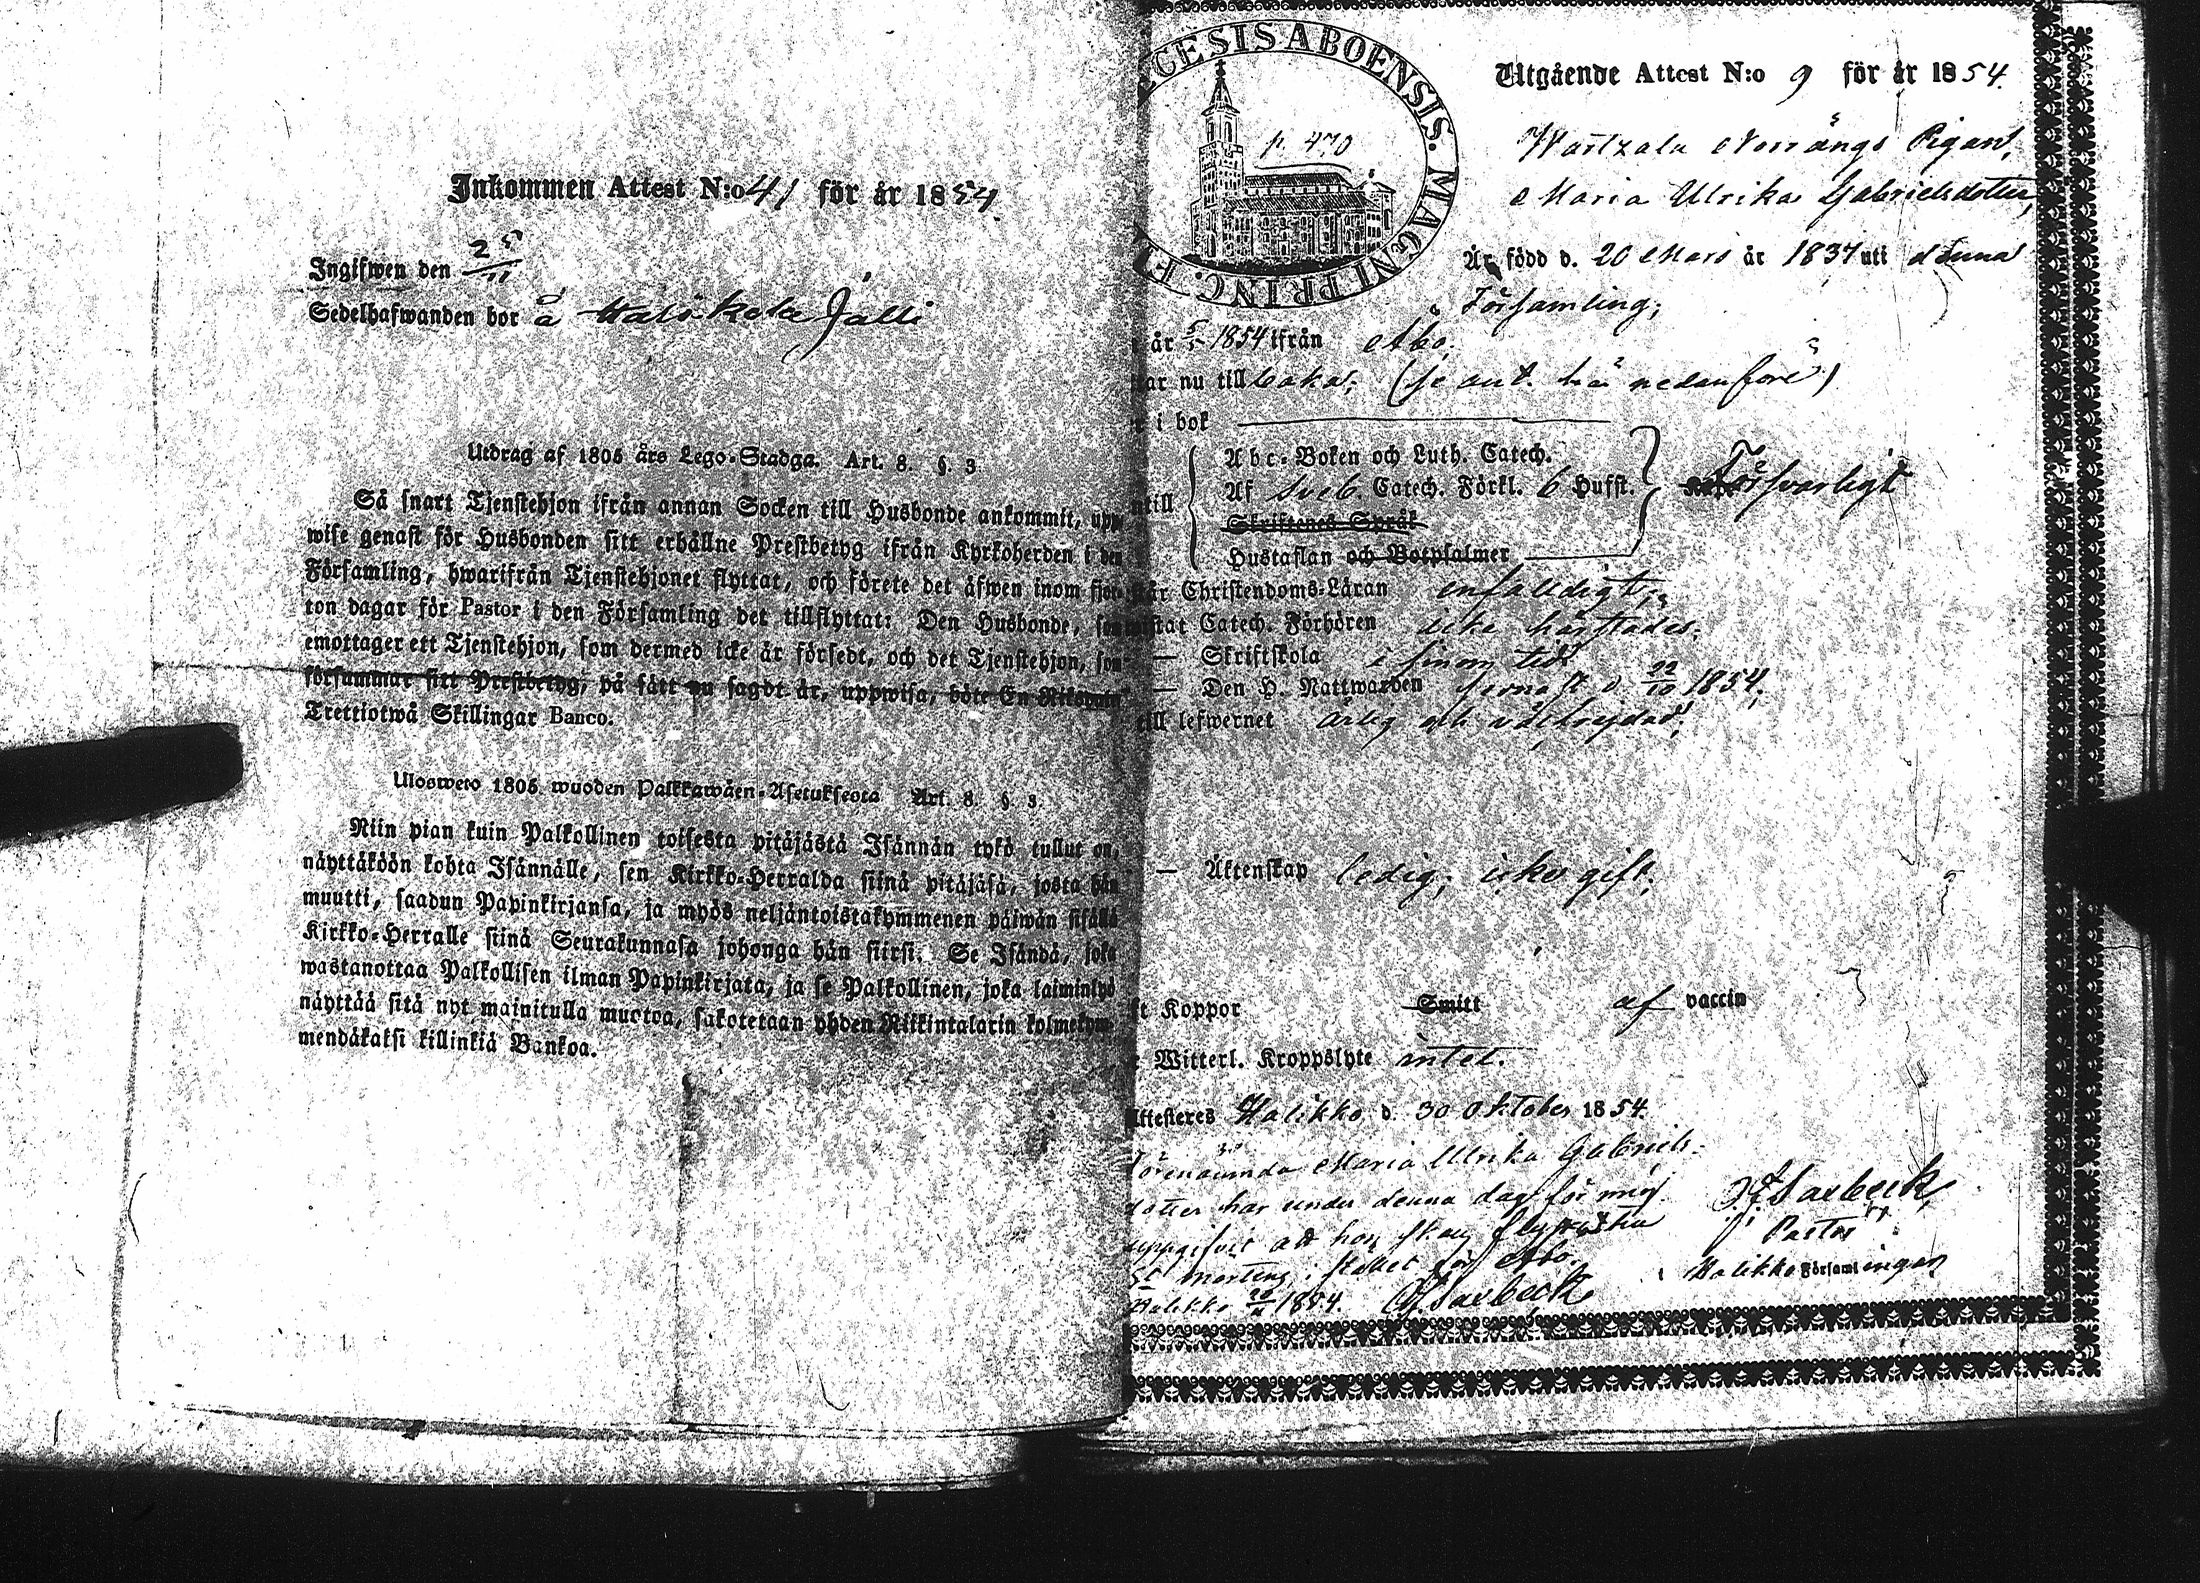 Inkommen Attest N:o 41 för år 1854.
Ingifwen den 25/11
Sedelhafwanden bor å
Utdrag af 1805 års Lego-Stadga. Art. 8. §. 3.
Så snart Tjenstehjon ifrån annan Socken till Husbonde ankommit, upp-
wise genast för Husbonden sitt erhållne Prestbetyg ifrån Kyrkoherden i den
Församling, hwarifrån Tjenstehjonet flyttat, och förete det äfwen inom fjor-
ton dagar för Pastor i den Församling det tillflyttat: Den Husbonde, som
emottager ett Tjenstehjon, som dermed icke är försedt, och det Tjenstehjon, som
försummar sitt Prestbetyg, på sätt nu sagdt är, uppwisa, böte En Riksdaler
Trettiotwå Skillingar Banco.
Ulosweto 1805 wuoden Palkkawäen-Asetuksesta Art. 8. §. 3.
Niin pian kuin Palkollinen toisesta pitäjästä Isännän tykö tullut on,
näyttäköön kohta Isännälle, sen Kirkko-Herralda siinä pitäjäsä, josta hän
muutti, saadun Papinkirjansa, ja myös neljäntoistakymmenen päiwän sisällä
Kirkko-Herralle siinä Seurakunnasa johonga hän siirsi. Se Isändä, joka
wastanottaa Palkollisen ilman Papinkirjata, ja se Palkollinen, joka laiminlyö
näyttää sitä nyt mainitulla muotoa, sakotetaan yhden Riikintalarin kolmekym-
mendäkaksi killinkiä Bankoa.
CESIS ABOENSIS. MAGNI PRINC. F
p. 470
Utgående Attest N:o 9 för år 1854.
Wartzala Norrängs Pigan,
Maria Ulrika Gabrielsdotter,
Är född d. 20 Mars år 1837 uti denna
Församling;
år 1854 ifrån Åbo;
ar nu tillbaka; (se ant. här nedanföre)
i bok
Abc-Boken och Luth. Catech.
Af Sveb. Catech. Förkl. 6 Hufst. Försvarligt
ntill
Skriftenes Språk
Hustaflan och Botpsalmer
år Christendoms-Läran enfaldigt;
Catech. Förhören icke härstädes;
— Skriftskola i sinom tid
— Den H. Nattwarden senast d. 22/10 1854,
till lefwernet ärlig och välfrejdad;
— Äktenskap ledig; icke gift;
Koppor Smitt af vaccin
Witterl. Kroppslyte intet.
Attesteres Halikko d. 30 Oktober 1854.
Förenämnda Maria Ulrika Gabriels-
dotter har under denna dag för mig
uppgifvit att hon skall flytta till
St Mårtens i stället för Åbo.
Halikko 1854.
Pastor
Halikko Församlingen